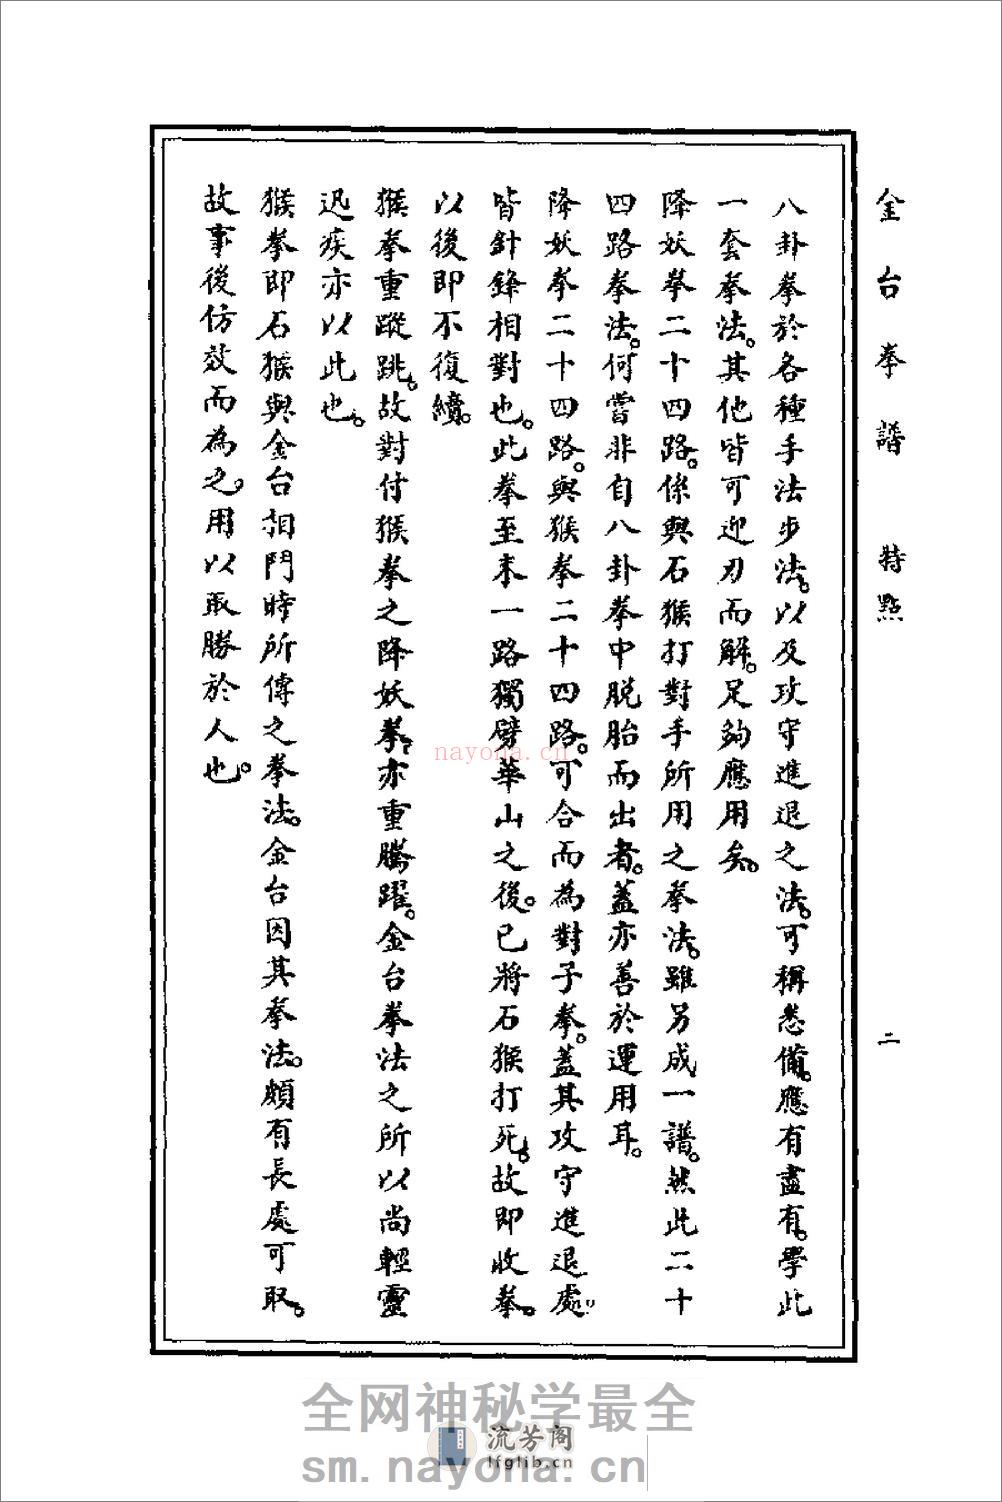 金台拳譜　特點　二
八卦拳於各種手法步法。以及攻守進退之法。可稱悉備。應有盡有。學此
一套拳法。其他皆可迎刃而解。足夠應用矣。
降妖拳二十四路。係與石猴打對手所用之拳法。雖另成一譜。然此二十
四路拳法。何嘗非自八卦拳中脫胎而出者。蓋亦善於運用耳。
降妖拳二十四路。與猴拳二十四路。可合而為對子拳。蓋其攻守進退處。
皆針鋒相對也。此拳至末一路獨劈華山之後。已將石猴打死。故即收拳。
以後即不復續。
猴拳重蹤跳。故對付猴拳之降妖拳。亦重騰躍。金台拳法之所以尚輕靈
迅疾亦以此也。
猴拳即石猴與金台相鬥時所傳之拳法。金台因其拳法。頗有長處可取。
故事後仿效而為之。用以取勝於人也。
nayona.cn
全网神秘学最全
流芳阁
lfglib.cn
sm.nayona.cn